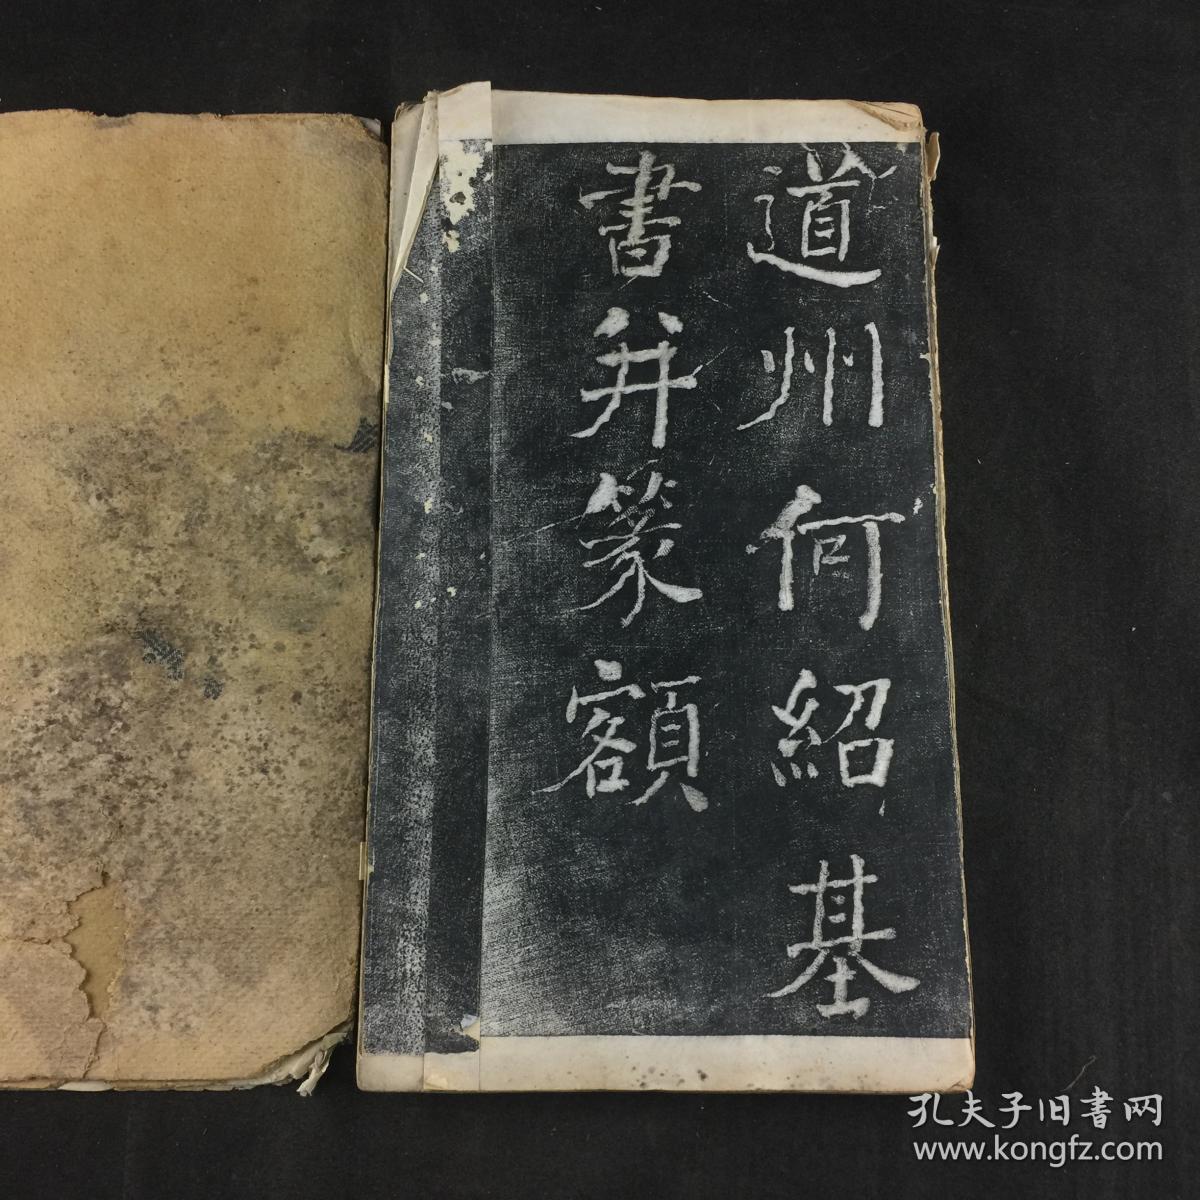 道州何紹基
書并篆額
孔夫子旧書网
www.kongfz.com